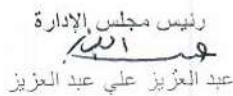 رئيس مجلس الإدارة
عبد العزيز علي عبد العزيز